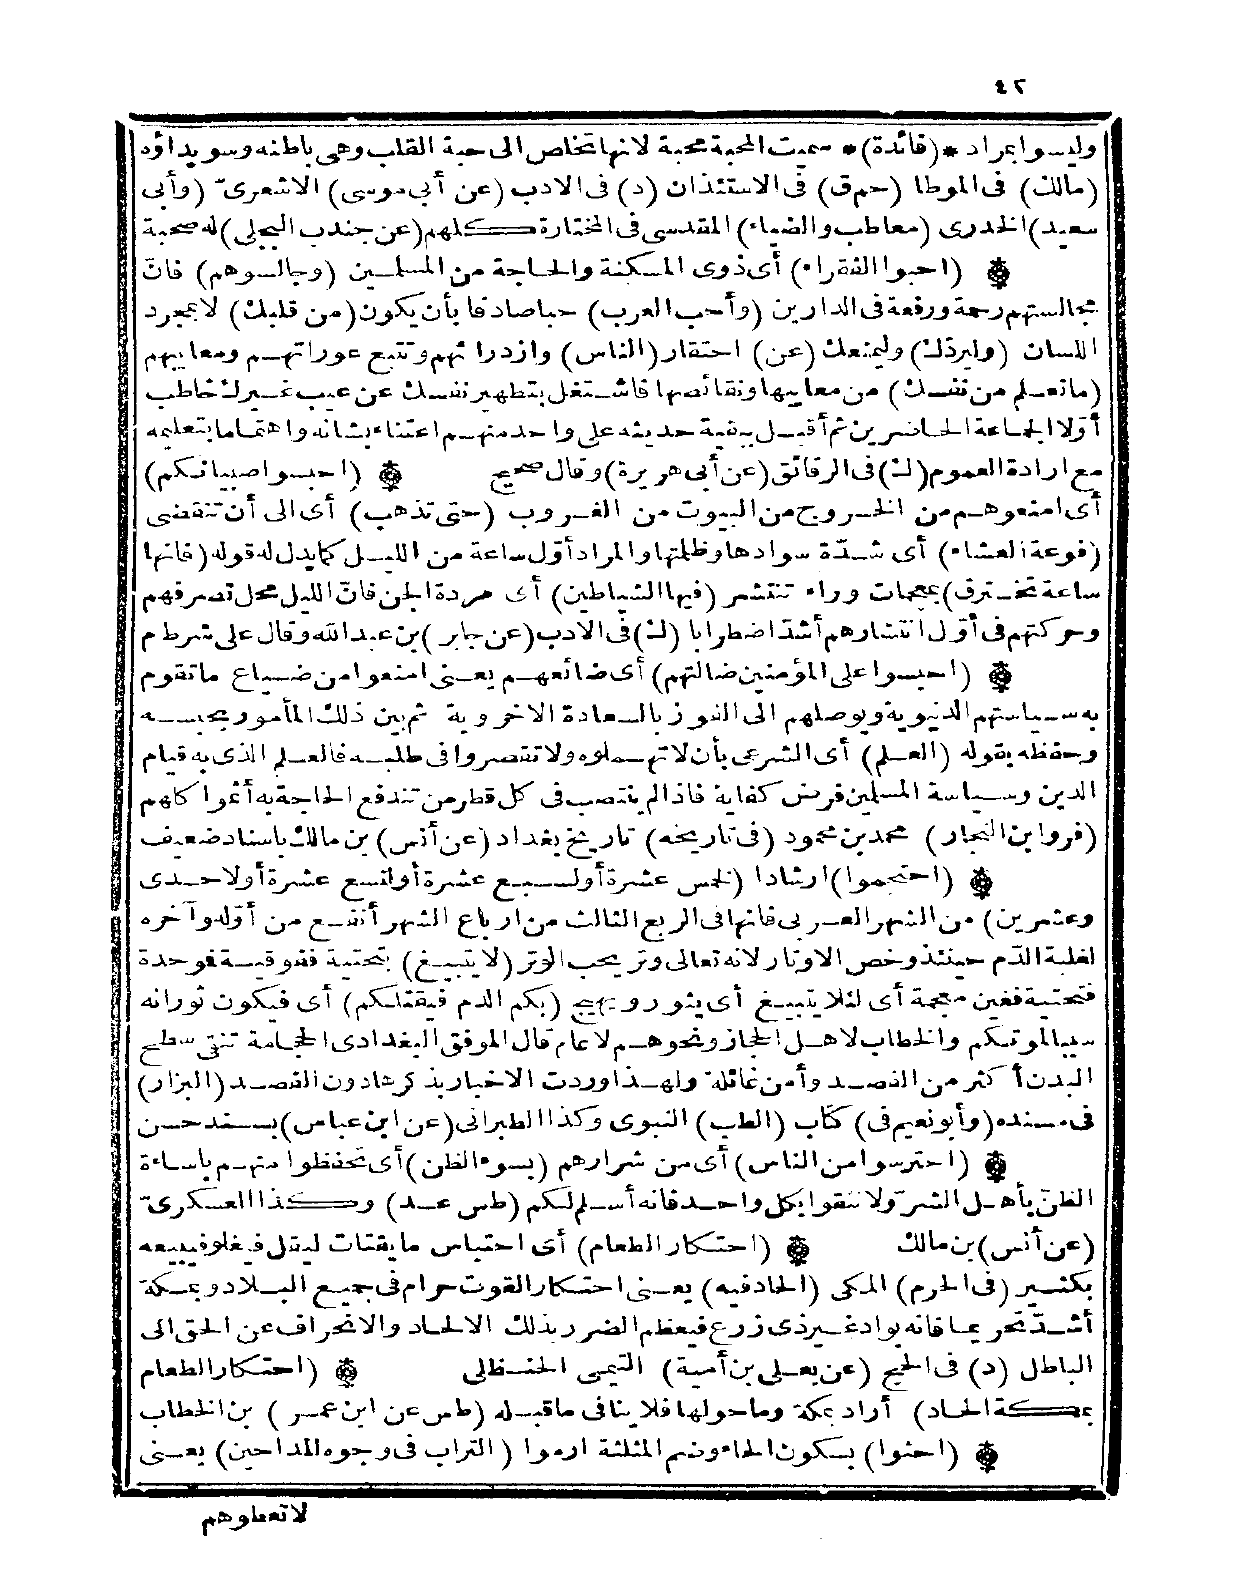 ٤٢
وليسوا بمراد * (فائدة) * سميت المحبة محبة لانها تخلص الى حبة القلب وهى باطنه وسويداؤه
(مالك) فى الموطا (حم ق) فى الاستئذان (د) فى الادب (عن أبى موسى) الاشعرىّ (وأبى
سعيد) الخدرى (معا طب والضياء) المقدسى فى المختارة كلهم (عن جندب البجلى) له صحبة
(احبوا الفقراء) أى ذوى المسكنة والحاجة من المسلمين (وجالسوهم) فانّ
مجالستهم رحمة ورفعة فى الدارين (وأحب العرب) حبا صادقا بأن يكون (من قلبك) لا بمجرد
اللسان (وليردك) وليمنعك (عن) احتقار (الناس) وازدرائهم وتتبع عوراتهم ومعايبهم
(ما تعلم من نفسك) من معايبها ونقائصها فاشتغل بتطهير نفسك عن عيب غيرك خاطب
أوّلا الجماعة الحاضرين ثم أقبل ببقية حديثه على واحد منهم اعتناء بشانه واهتماما بتعليمه
مع ارادة العموم (ك) فى الرقائق (عن أبى هريرة) وقال صحيح (احبسوا صبيانكم)
أى امنعوهم من الخروج من البيوت من الغروب (حتى تذهب) أى الى أن تنقضى
(فوعة العشاء) أى شدّة سوادها وظلمتها والمراد أوّل ساعة من الليل كما يدل له قوله (فانها
ساعة تخترق) بمعجمات وراء تنتشر (فيها الشياطين) أى مردة الجن فانّ الليل محل تصرفهم
وحركتهم فى أوّل انتشارهم أشدّ اضطرابا (ك) فى الادب (عن جابر) بن عبد الله وقال على شرط م
(احبسوا على المؤمنين ضالتهم) أى ضائعهم يعنى امنعوا من ضياع ما تقوم
به سياستهم الدنيوية ويوصلهم الى الفوز بالسعادة الاخروية ثم بين ذلك المأمور بحبسه
وحفظه بقوله (العلم) أى الشرعى بأن لا تهملوه ولا تقصروا فى طلبه فالعلم الذى به قيام
الدين وسياسة المسلمين فرض كفاية فاذا لم ينتصب فى كل قطر من تندفع الحاجة به أثموا كلهم
(فر وابن النجار) محمد بن محمود (فى تاريخه) تاريخ بغداد (عن أنس) بن مالك باسناد ضعيف
(احتجموا) ارشادا (لخمس عشرة أو لسبع عشرة أو لتسع عشرة أو لاحدى
وعشرين) من الشهر العربى فانها فى الربع الثالث من ارباع الشهر أنفع من أوّله وآخره
لغلبة الدّم حينئذ وخص الاوتار لانه تعالى وتر يحب الوتر (لا يتبيغ) بتحتية ففوقية فموحدة
فتحتية فغين معجمة أى لئلا يتبيغ أى يثور ويهيج (بكم الدم فيقتلكم) أى فيكون ثورانه
سببا لموتكم والخطاب لاهل الحجاز ونحوهم لا عام قال الموفق البغدادى الحجامة تنقى سطح
البدن أكثر من الفصد وآمن غائلة ولهذا وردت الاخبار بذكرها دون الفصد (البزار)
فى مسنده (وأبو نعيم فى) كتاب (الطب) النبوى وكذا الطبرانى (عن ابن عباس) بسند حسن
(احترسوا من الناس) أى من شرارهم (بسوء الظن) أى تحفظوا منهم باساءة
الظنّ بأهل الشرّ ولا تثقوا بكل واحد فانه أسلم لكم (طس عد) وكذا العسكرىّ
(عن أنس) بن مالك (احتكار الطعام) أى احتباس ما يقتات ليقل فيغلو فيبيعه
بكثير (فى الحرم) المكى (الحاد فيه) يعنى احتكار القوت حرام فى جميع البلاد وبمكة
أشدّ تحريما فانه بواد غير ذى زرع فيعظم الضرر بذلك الالحاد والانحراف عن الحق الى
الباطل (د) فى الحج (عن يعلى بن أمية) التيمى الحنظلى (احتكار الطعام
بمكة الحاد) أراد بمكة وما حولها فلا ينافى ما قبله (طس عن ابن عمر) بن الخطاب
(احثوا) بسكون الحاء وضم المثلثة ارموا (التراب فى وجوه المداحين) يعنى
لا تعطوهم